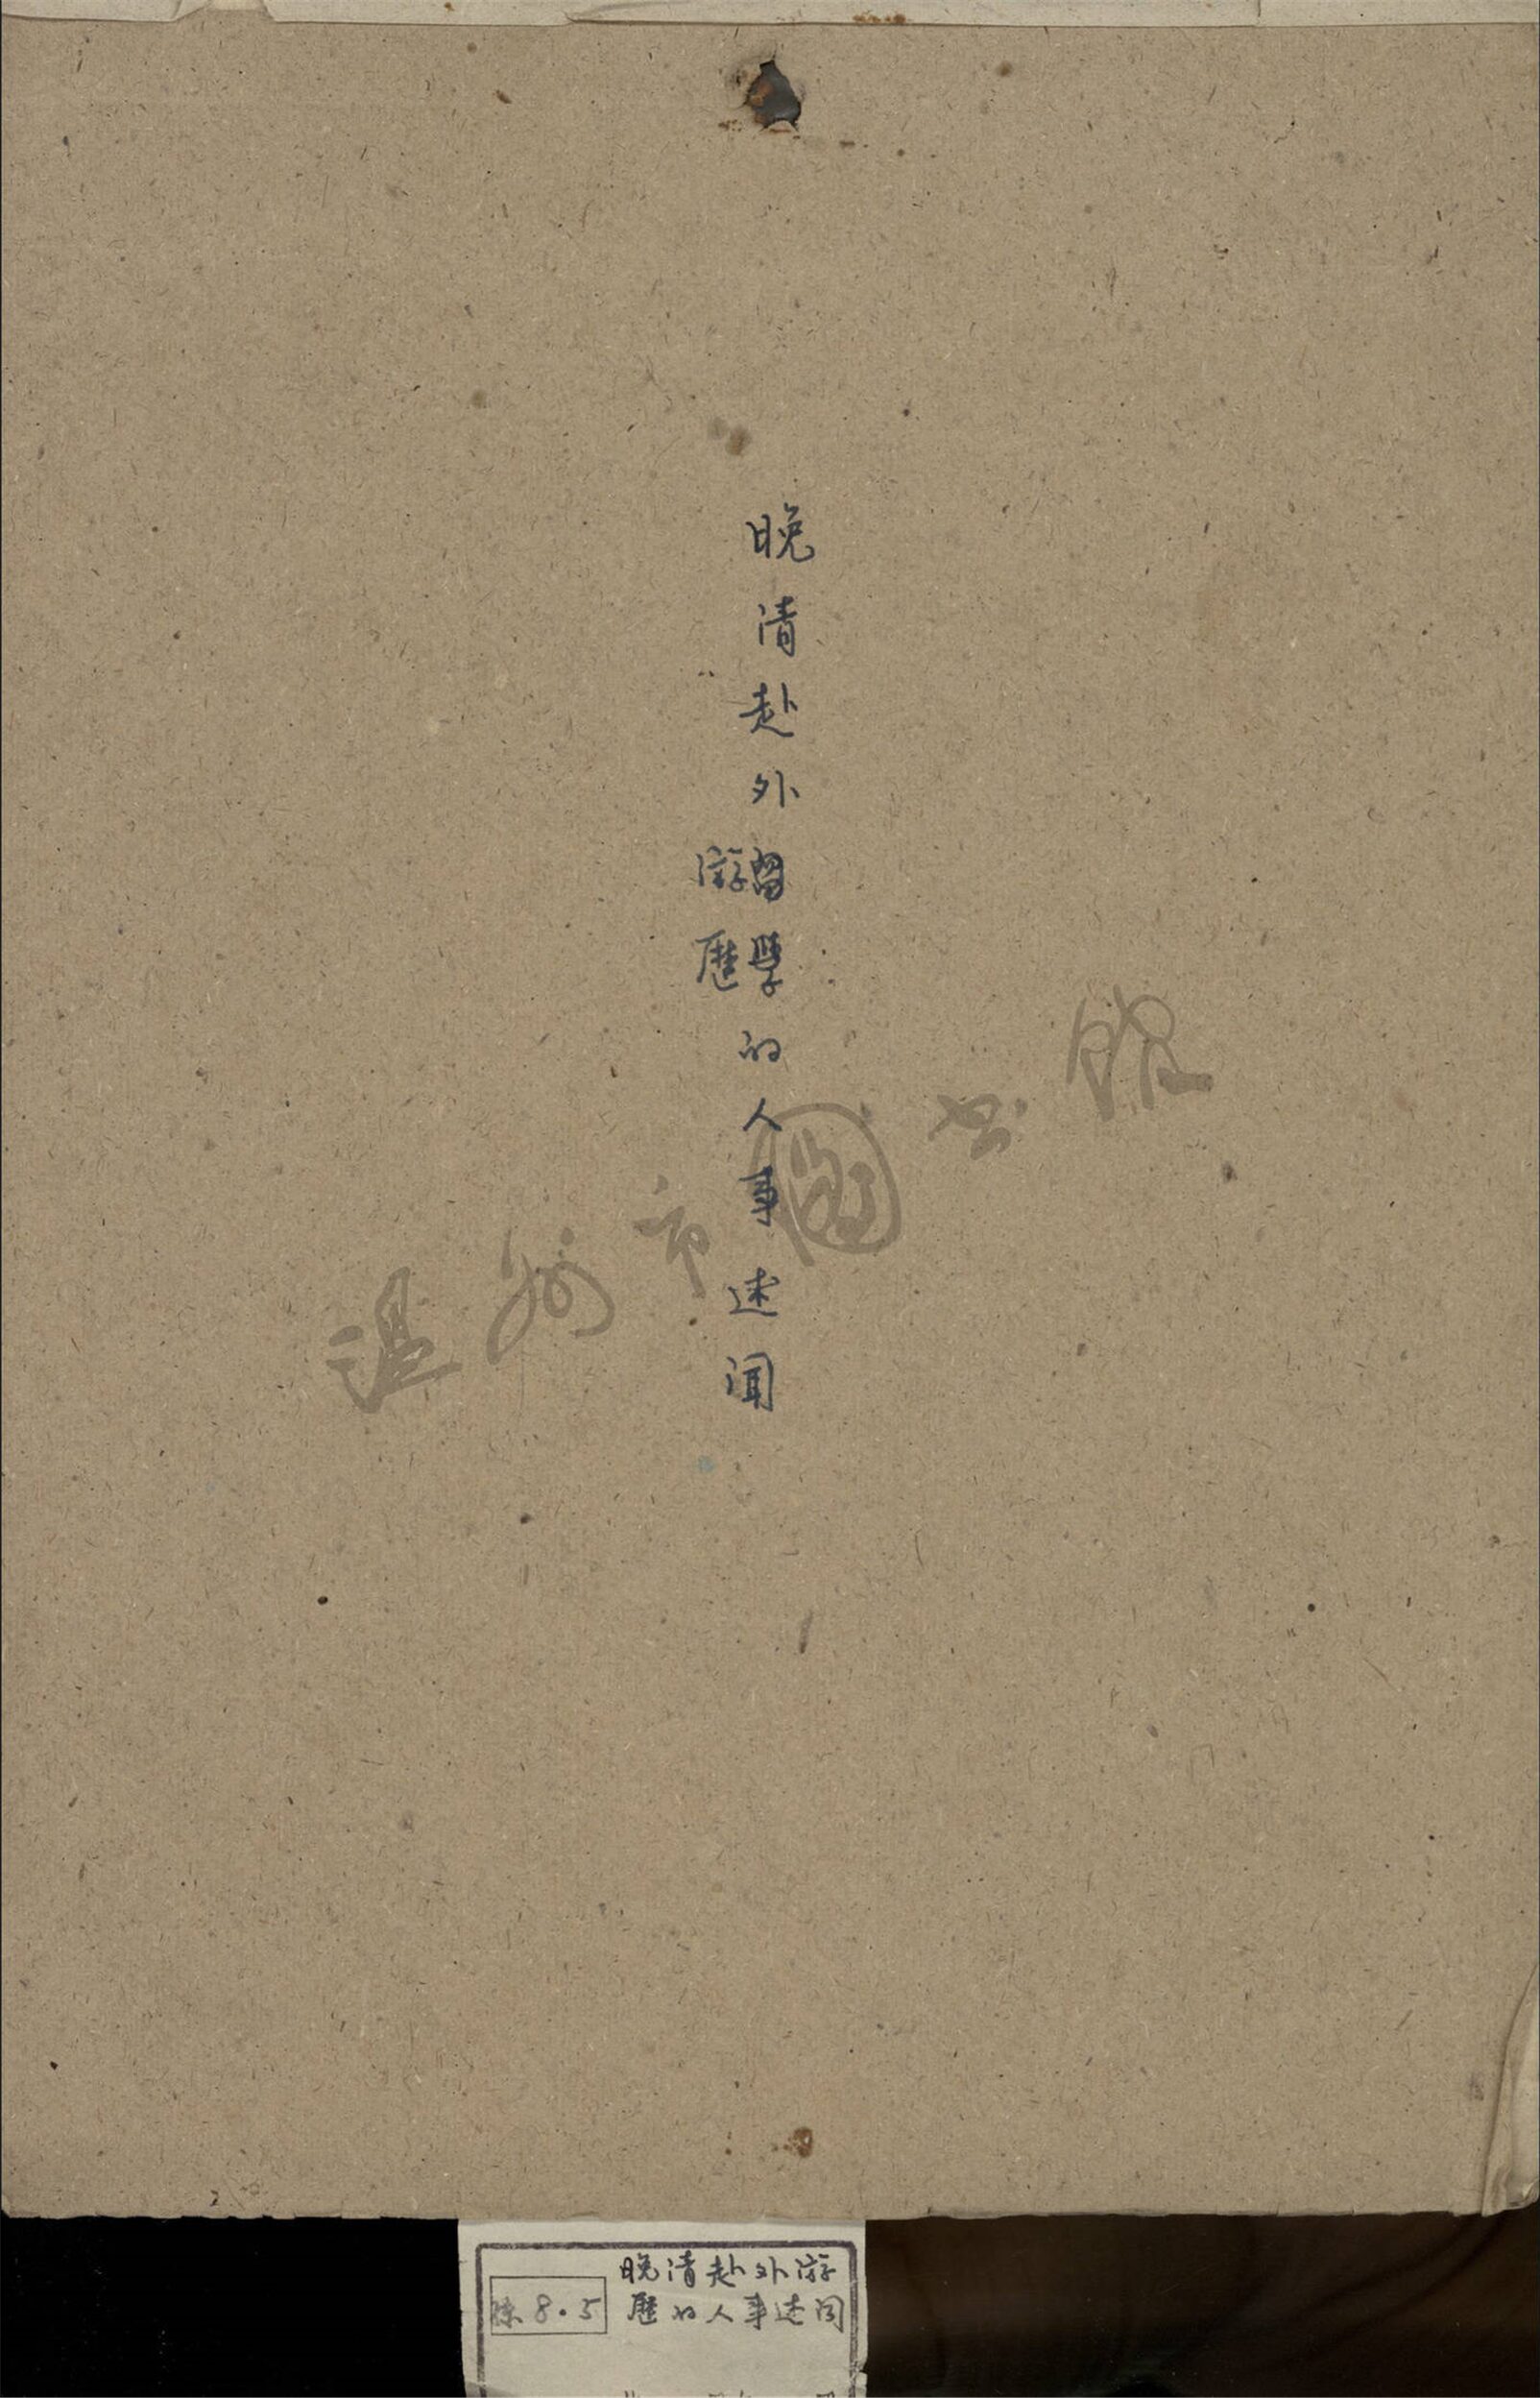 晚清赴外留學的人事述闻
游歷
温州市圖书馆
晚清赴外游
歷的人事述闻
8.5